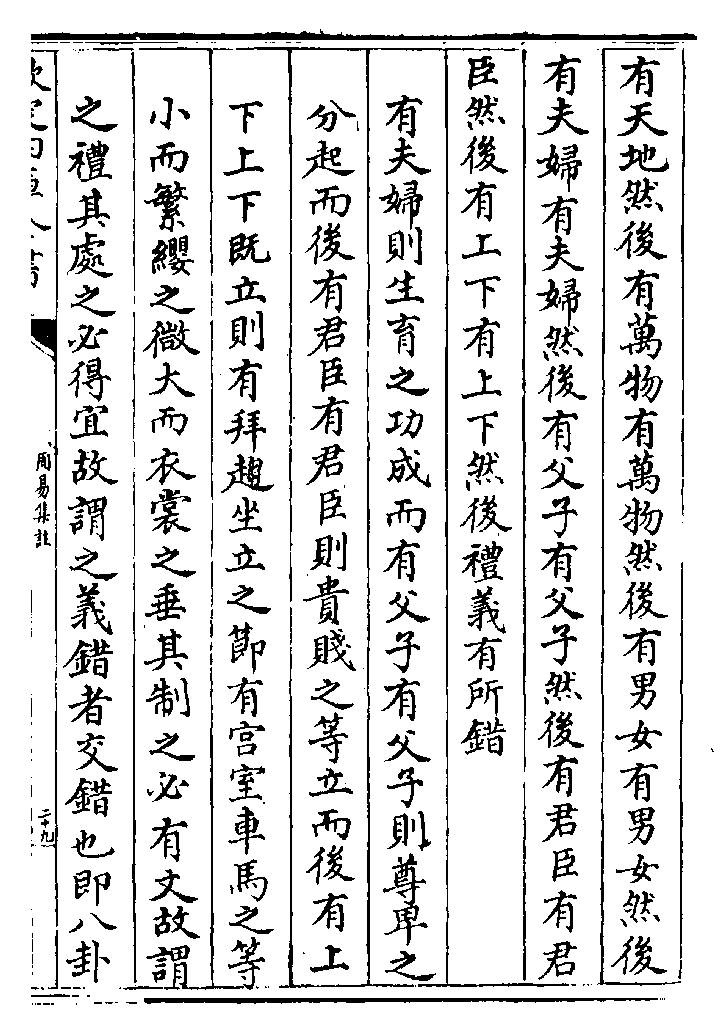 有天地然後有萬物有萬物然後有男女有男女然後
有夫婦有夫婦然後有父子有父子然後有君臣有君
臣然後有上下有上下然後禮義有所錯
有夫婦則生育之功成而有父子有父子則尊卑之
分起而後有君臣有君臣則貴賤之等立而後有上
下上下既立則有拜趨坐立之節有宫室車馬之等
小而繁纓之微大而衣裳之垂其制之必有文故謂
之禮其處之必得宜故謂之義錯者交錯也即八卦
欽定四庫全書
周易集註
二十九